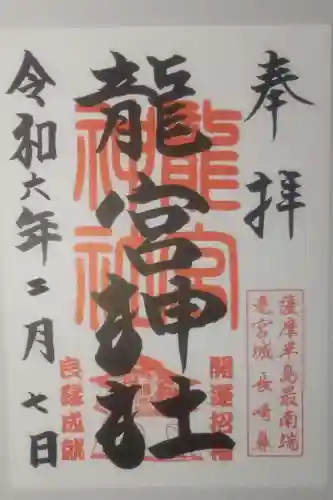 奉拝
薩摩半島最南端
竜宮城長崎鼻
龍宮神社
龍宮
神社
開運招福
良縁成就
令和六年二月七日